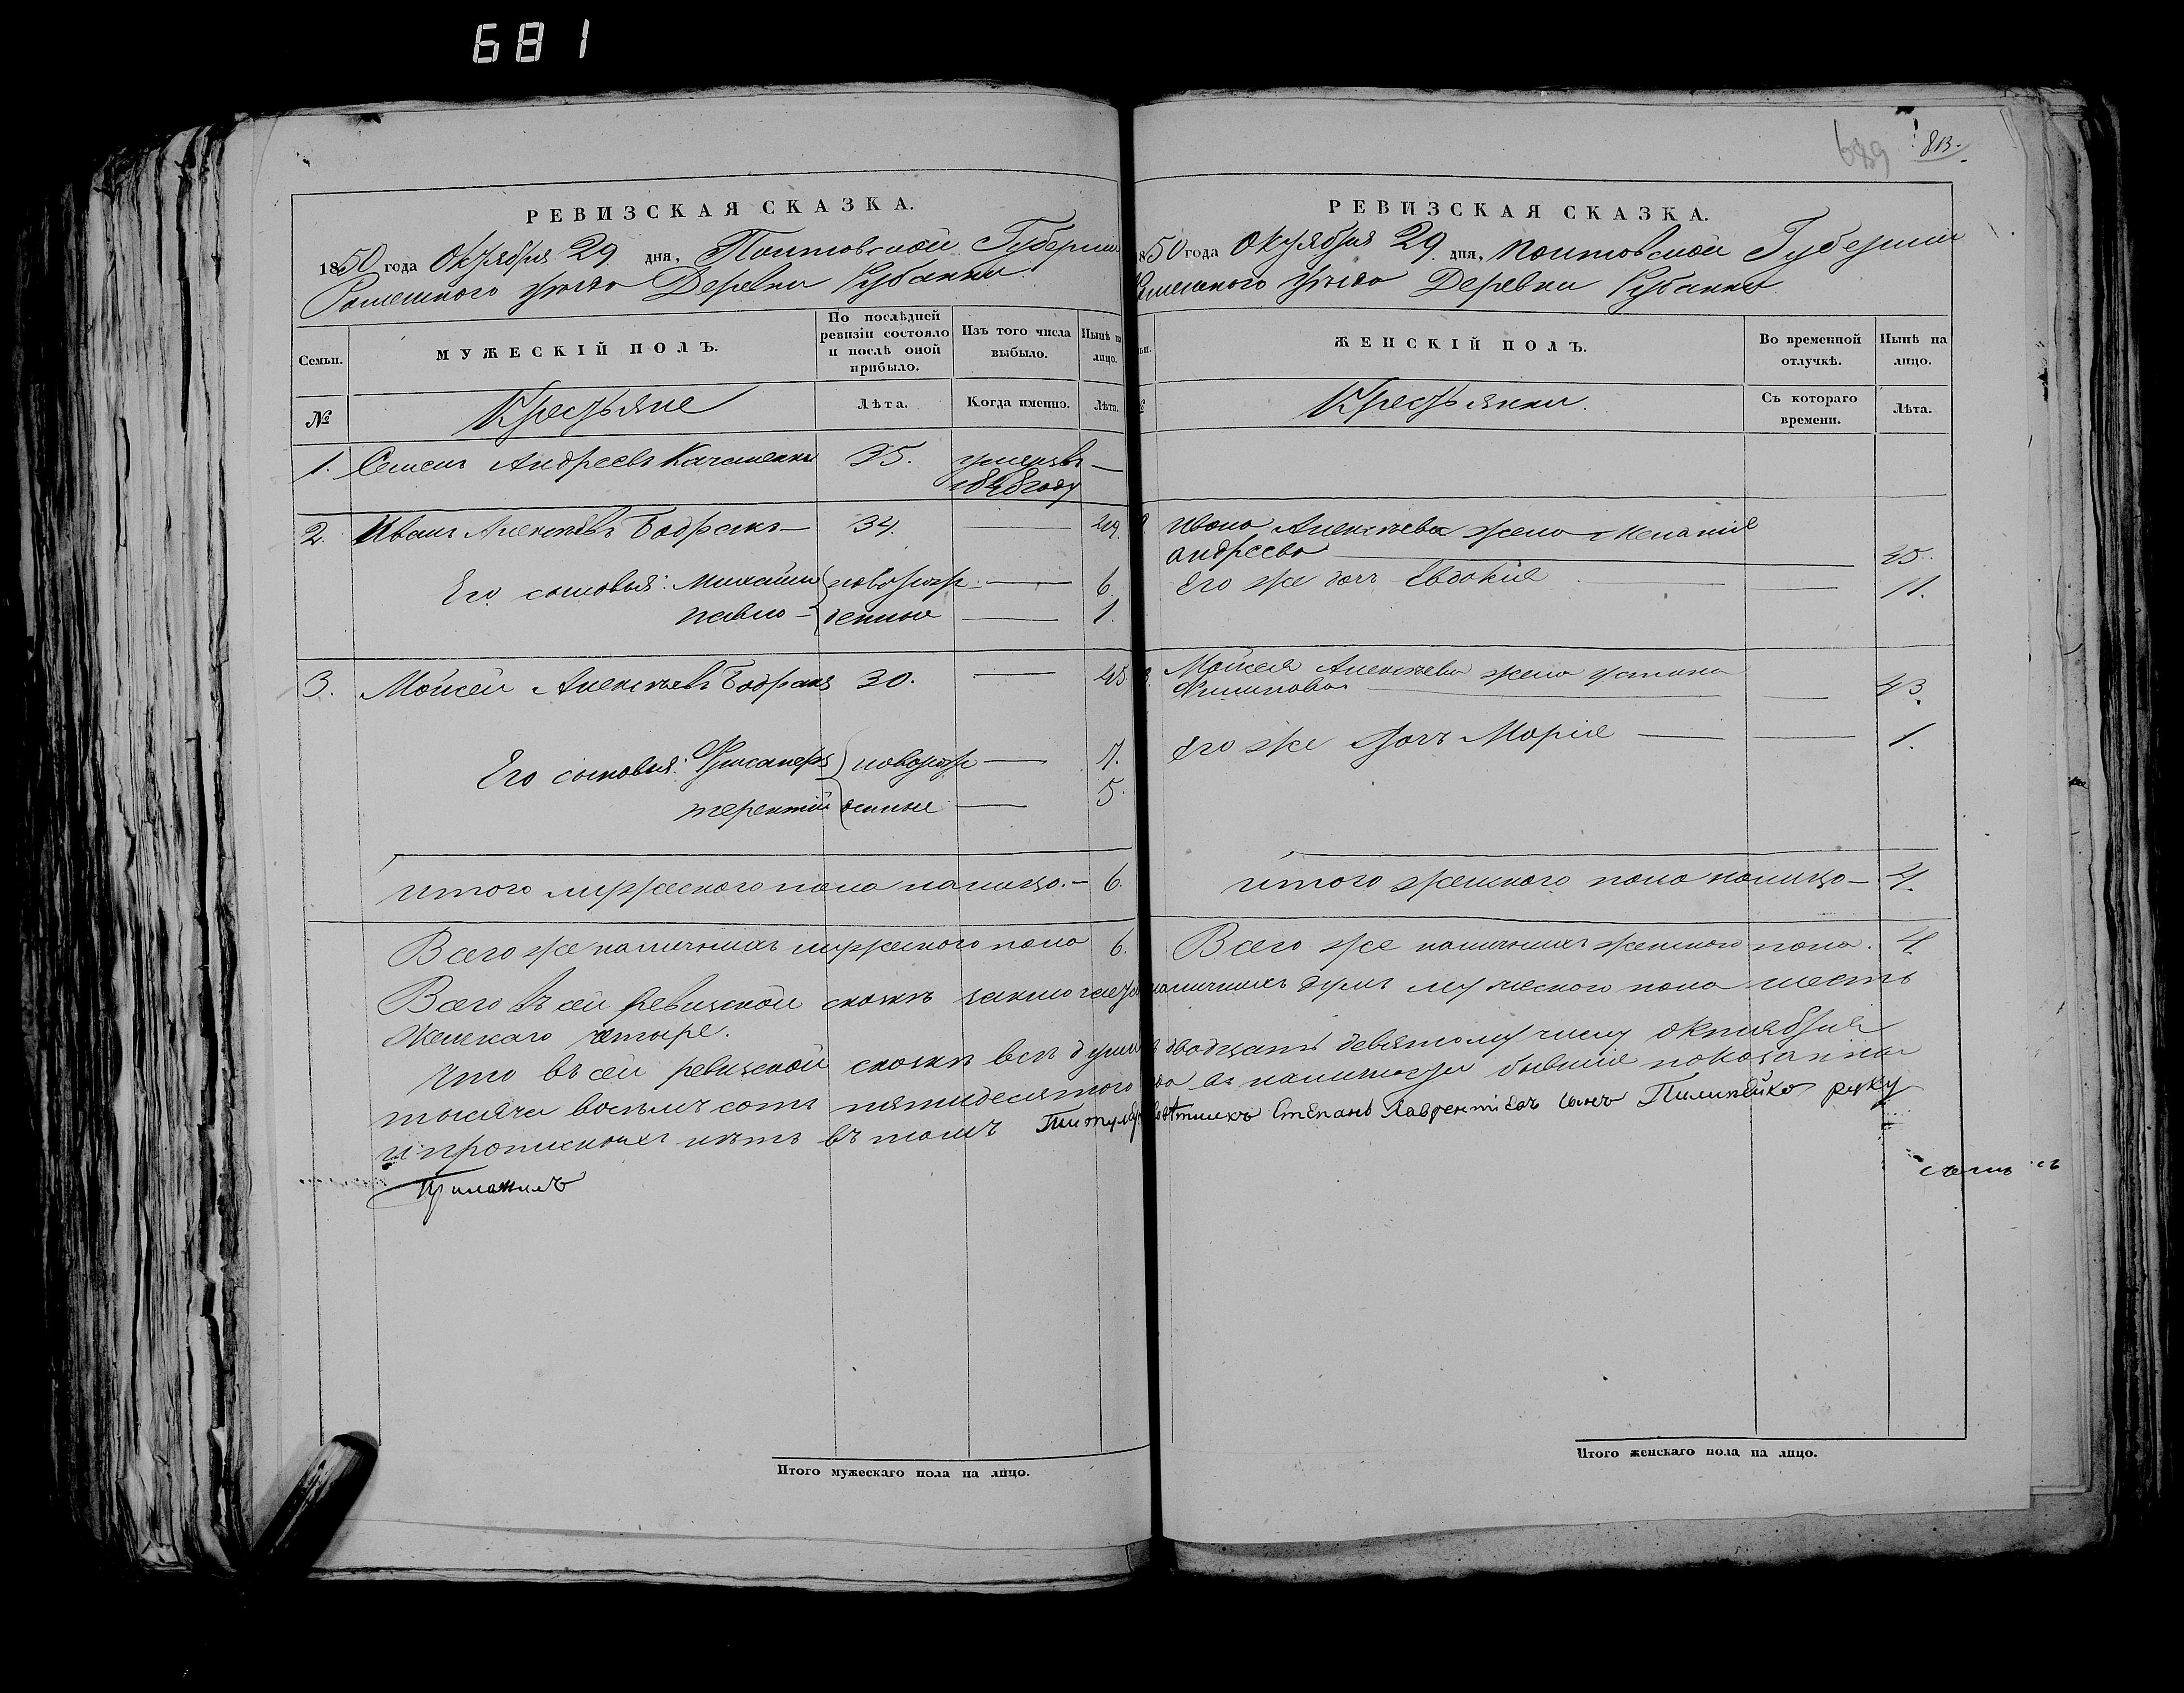 681
689
813.
РЕВИЗСКАЯ СКАЗКА.
1850 года Октября 29 дня, Полтавской Губернии
Роменского уѣзда Деревни Рубанки
Семьи.
МУЖЕСКІЙ ПОЛЪ.
По послѣдней ревизіи состояло и послѣ оной прибыло.
Изъ того числа выбыло.
Нынѣ на лицо.
№
Крестьяне
Лѣта.
Когда именно.
Лѣта.
1. Семенъ Андреевъ 35. умеръ въ —
1848 году
2. Иванъ Алексѣевъ Бодракъ — 34. —
Его сыновья: Михайла новорож — 6.
Павло — денные — 1.
3. Мойсей Алексѣевъ Бодракъ 30. — 45
Его сыновья: новорож — 7.
Терентій денные — 5.
Итого мужеского пола налицо. — 6.
Всего же наличныхъ мужеского пола 6.
РЕВИЗСКАЯ СКАЗКА.
1850 года Октября 29 дня, Полтавской Губернии
Роменского уѣзда Деревни Рубанки
ЖЕНСКІЙ ПОЛЪ.
Во временной отлучкѣ.
Нынѣ на лицо.
Крестьянки.
Съ котораго времени.
Лѣта.
2. Ивана Алексѣева жена Меланія
Андреева 45.
Его же дочь Евдокія — 11.
3. Мойсея Алексѣева жена Устина
Филипова — 43.
Его же дочь Марія — 1.
Итого женского пола налицо — 4.
Всего же наличныхъ женского пола. 4.
Всего въ сей ревизской сказкѣ заключается наличныхъ душъ мужеского пола шесть
Женскаго четыре.
Что въ сей ревизской сказкѣ всѣ душъ двадцать девятому числу октября
тысяча восемь сотъ пятидесятого года въ наличности бывшие показанны
и прописныхъ нѣтъ въ томъ Титулярный Совѣтникъ Степанъ Лаврентіевъ сынъ Пилипейко руку
Приложилъ
Итого мужескаго пола на лицо.
Итого женскаго пола на лицо.